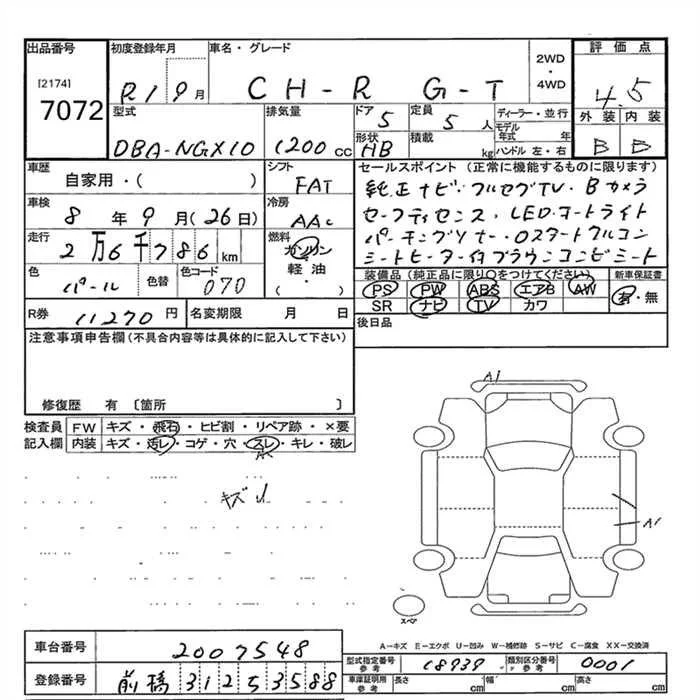 出品番号 初度登録年月 車名・グレード 2WD・4WD 評価点
[2174] 7072 R1 9月 CH-R G-T 4.5
型式 排気量 ドア 定員 ディーラー・並行 外装 内装
DBA-NGX10 1200cc 5 5人 モデル年式 年 B B
形状 積載 ハンドル 左・右
HB kg
車歴 シフト セールスポイント(正常に機能するものに限ります)
自家用・( ) FAT 純正ナビ・フルセグTV・Bカメラ
車検 冷房 セーフティセンス・LEDオートライト
8年9月(26日) AAC
走行 燃料
2万6千786km ガソリン シートヒーター付ブラウンコンビシート
色 色替 色コード 軽油・
パール 070 ( )
装備品(純正品に限り○をつけてください) 新車保証書
PS PW ABS エアB AW 有・無
SR ナビ TV カワ
R券 11270円 名変期限 月 日 後日品
注意事項申告欄(不具合内容等は具体的に記入して下さい)
修復歴 有〔箇所 〕
検査員記入欄 FW キズ・飛石・ヒビ割・リペア跡・×要
内装 キズ・汚レ・コゲ・穴・スレ・キレ・破レ
キズ
A1
A1
スペア
A-キズ E-エクボ U-凹み W-補修跡 S-サビ C-腐食 XX-交換済
車台番号 2007548
登録番号 前橋 312 53588
型式指定番号 参考 18939 類別区分番号 参考 0001
車庫証明用 参考 長さ cm 幅 cm 高さ cm